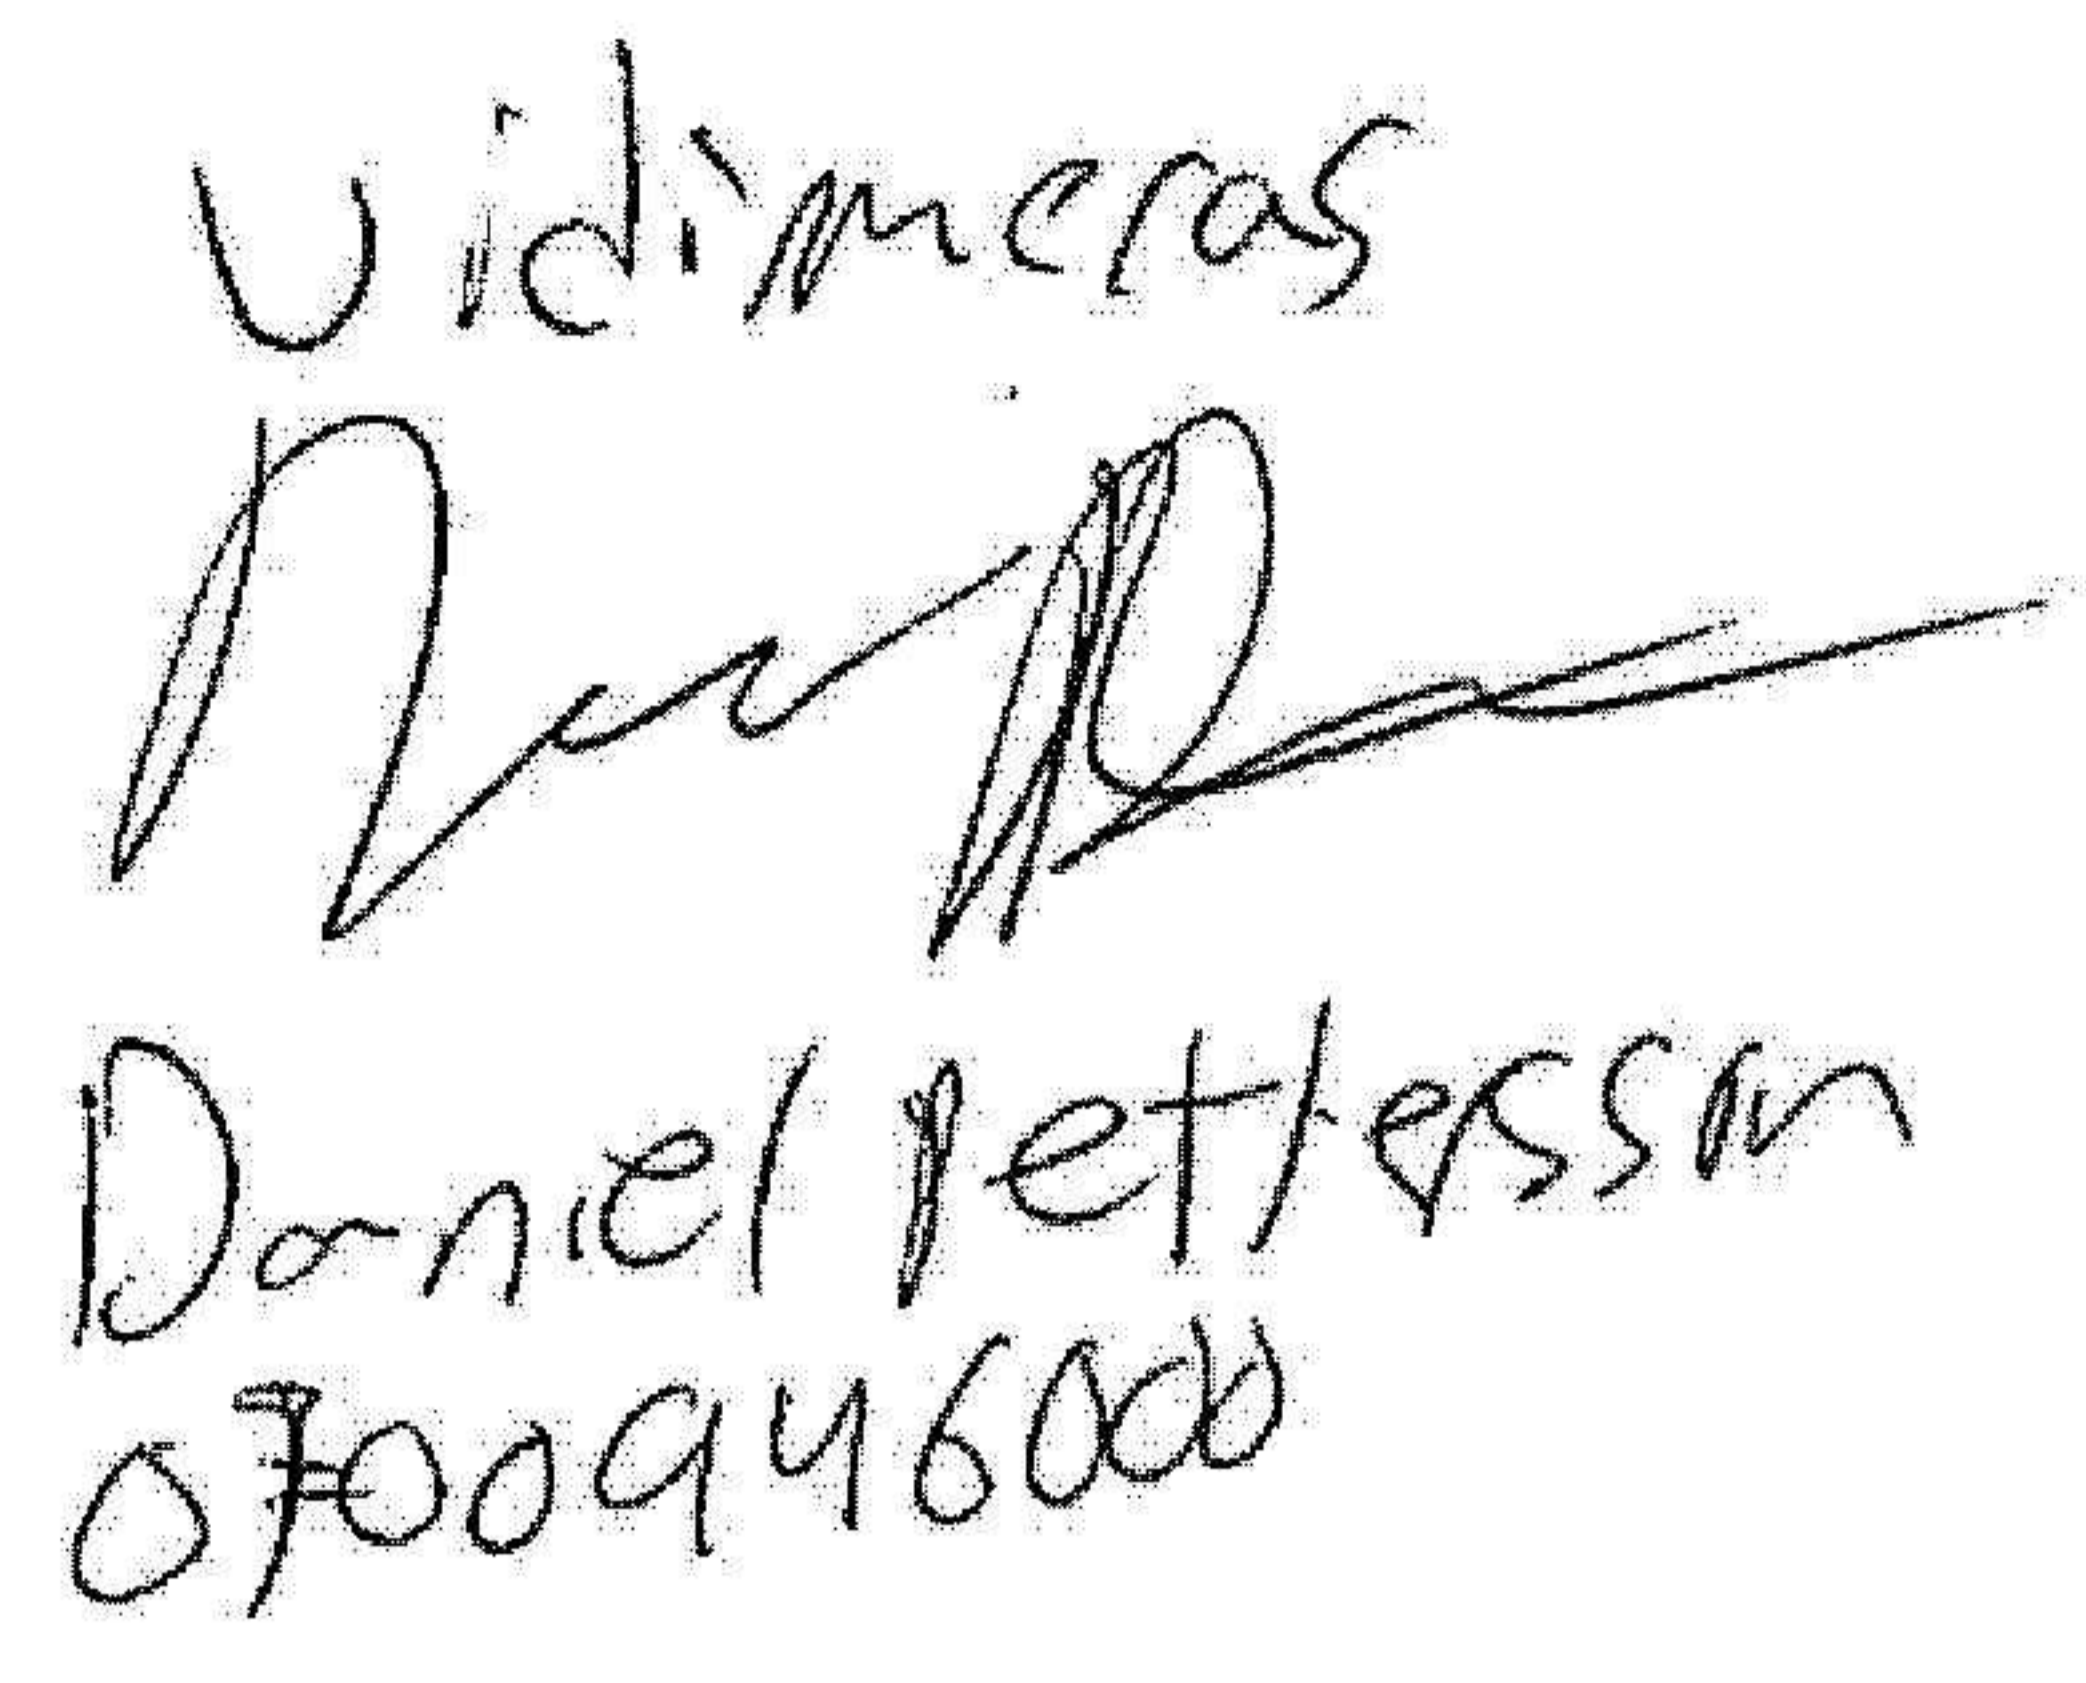 Vidimeras
Daniel Pettersson
0700946000